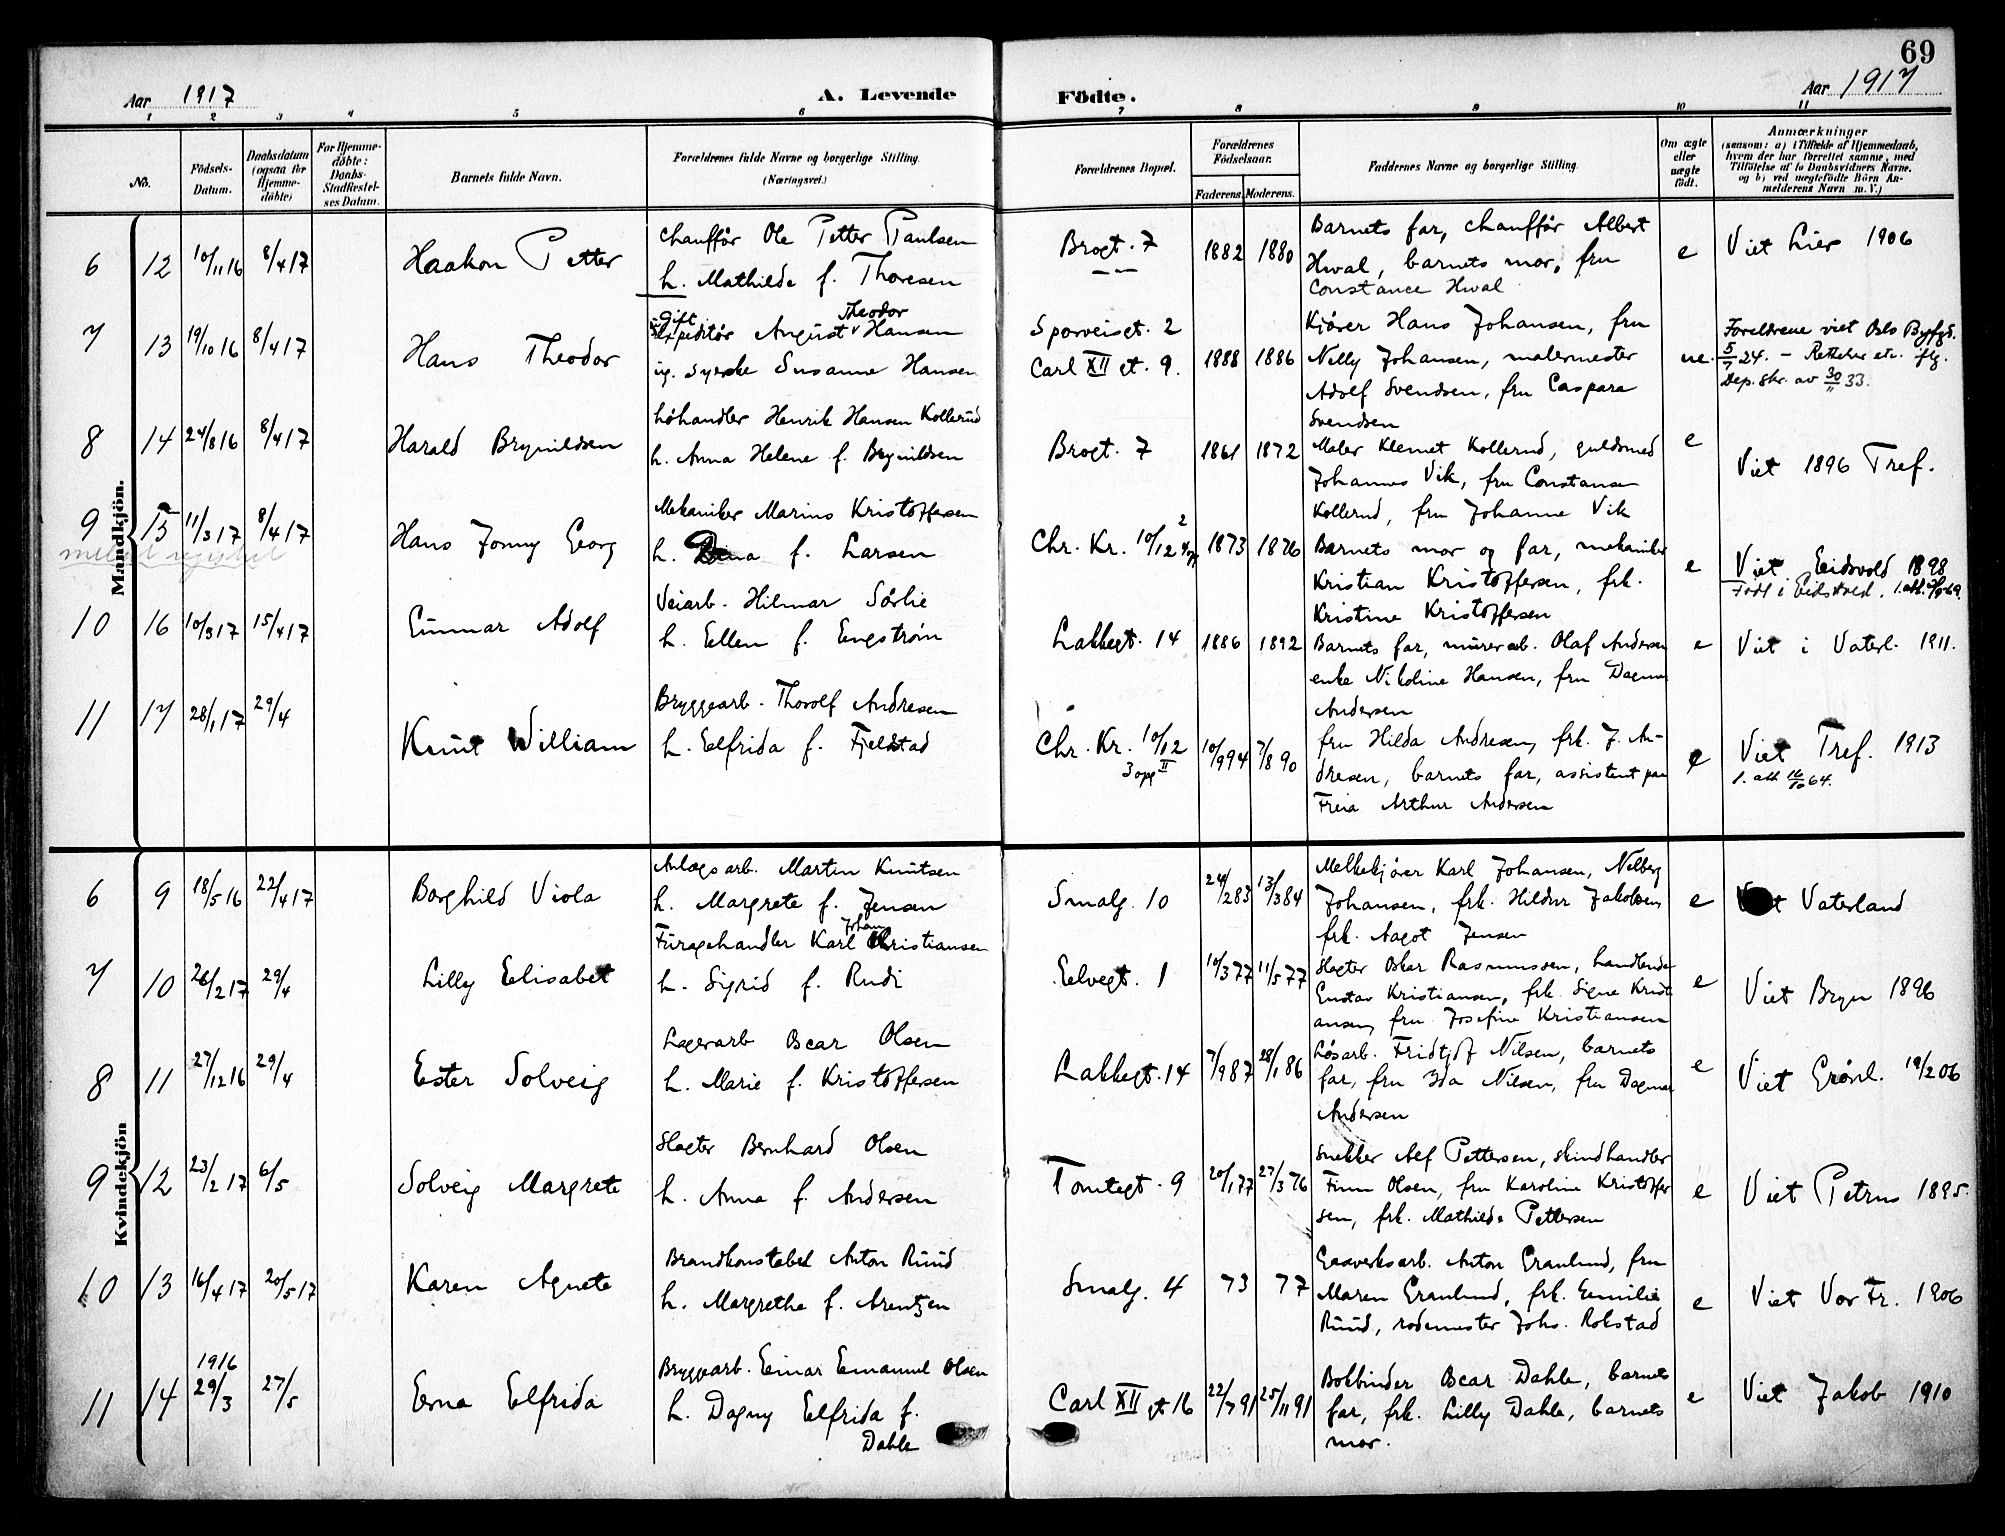 69
Aar 1917 A. Levende Födte. Aar 1917
1 2 3 4 5 6 7 8 9 10 11
No.
Födsels-Datum.
Daabsdatum (ogsaa for Hjemme-döbte)
For Hjemme-döbte: Daabs-Stadfæstel-ses Datum.
Barnets fulde Navn.
Forældrenes fulde Navne og borgerlige Stilling.
(Næringsvei.)
Forældrenes Bopæl.
Forældrenes Födselsaar.
Faderens. Moderens.
Faddernes Navne og borgerlige Stilling.
Om ægte eller uægte födt.
Anmærkninger
(saasom: a) i Tilfælde af Hjemmedaab,
hvem der har forrettet samme, med
Tilföielse af to Daabsvidners Navne.
og b) ved uægtefödte Börn An-
melderens Navn m. V.)
Mandkjön.
6 12 10/11 16 8/4 17 Haakon Petter
chauffør Ole Petter Paulsen
h. Mathilde f. Thoresen
Brogt. 7
1882 1880
Barnets far, chauffør Albert
Hval, barnets mor, fru
Constance Hval
e Viet Lier 1906
7 13 19/10 16 8/4 17 Hans Theodor
gift Theodor
Expeditør August Hansen
ug. syerske Susanne Hansen
Sporveiset. 2
Carl XII gt. 9.
1888 1886
Kjører Hans Johansen, fru
Nelly Johansen, malermester
Adolf Svendsen, fru Caspara
Svendsen
ue. Foreldrene viet Oslo Byfgd.
5/7 24. - Rettelse etc. iflg.
Dep. skr. av 30/11 33.
8 14 24/8 16 8/4 17 Harald Brynildsen
Løhandler Henrik Hansen Kollerud
h. Anna Helene f. Brynildsen
Brogt. 7
1861 1872
Maler Klemet Kollerud, guldsmed
Johannes Vik, fru Constanse
Kollerud, fru Johanne Vik
e Viet 1896 Tref.
9 15 11/3 17 8/4 17 Hans Jonny Georg
Mekaniker Marius Kristoffersen
h. f. Larsen
Chr. Kr. 10/12 2 opg
1873 1876
Barnets mor og far, mekaniker
Kristian Kristoffersen, frk.
Kristine Kristoffersen
e Viet Eidsvold 1898
Født i Eidsvold.
10 16 10/3 17 15/4 17 Gunnar Adolf
Veiarb. Hilmar Sørlie
h. Ellen f. Engstrøm
Lakkegt. 14
1886 1892
Barnets far, murerarb. Olaf Andersen
enke Nikoline Hansen, fru Dagmar
Andersen
e Viet i Vaterl. 1911.
11 17 28/1 17 29/4 Knut William
Bryggearb. Thorolf Andresen
h. Elfrida f. Fjeldstad
Chr. Kr. 10/12
3 opg II
10/9 94 7/8 90
fru Hilda Andresen, frk. J. An-
dresen, barnets far, assistent paa
Freia Arthur Andersen
e Viet Tref. 1913
1. att 16/10 64.
Kvindekjön
6 9 18/5 16 22/4 17 Borghild Viola
Anlægsarb. Martin Knutsen
h. Margrete f. Jensen
Smalg. 10
24/2 83 13/3 84
Melkekjører Karl Johansen,
Johansen, frk. Hildur Jakobsen,
frk. Aagot Jensen
e Viet Vaterland
7 10 26/2 17 29/4 Lilly Elisabet
Johan
Furagehandler Karl Kristiansen
h. Sigrid f. Rudi
Elvegt. 1
10/3 77 11/5 77
Slagter Oskar Rasmussen, handlende
Gustav Kristiansen, frk. Signe Kristi
ansen, fru Josefine Kristiansen
e Viet Bryn 1896
8 11 27/12 16 29/4 Ester Solveig
Lagerarb Oscar Olsen
h. Marie f. Kristoffersen
Lakkegt. 14
7/9 87 28/1 86
Løsarb. Fridtjof Nilsen, barnets
far, fru Ida Nilsen, fru Dagmar
Andersen
e Viet Grønl. 18/2 06
9 12 23/2 17 6/5 Solveig Margrete
Slagter Bernhard Olsen
h. Anna f. Andersen
Tomtegt. 9
20/1 77 27/3 76
Snekker Alf Pettersen, skindhandler
Finn Olsen, fru Karoline Kristoffer
sen, frk. Mathilde Pettersen
e Viet Petrus 1895.
10 13 16/4 17 20/5 17 Karen Agnete
Brandkonstabel Anton Ruud
h. Margrethe f. Arentzen
Smalg. 4
73 77
Gasverksarb. Anton Granlund, fru
Maren Granlund, frk. Emilie
Ruud, rodemester Johs. Rokstad
e Viet Vor Fr. 1906
11 14 1916 29/3 27/5 Erna Elfrida
Bryggearb. Einar Emanuel Olsen
h. Dagny Elfrida f.
Dahle
Carl XII gt 16
22/7 91 25/11 91
Bokbinder Oscar Dahle, barnets
far, frk. Lilly Dahle, barnets
mor.
e Viet Jakob 1910